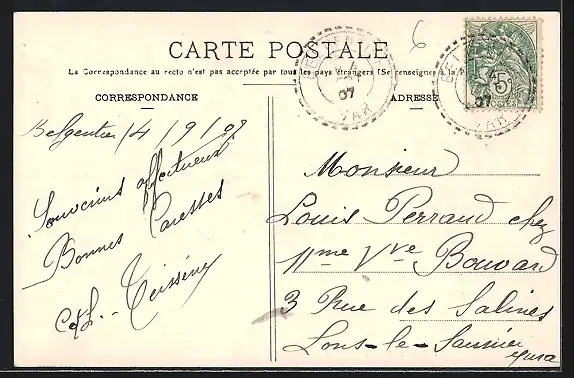 CARTE POSTALE
6
La Correspondance au recto n'est pas acceptée par tous les pays étrangers (Se renseigner à la
CORRESPONDANCE
ADRESSE
Belgentier 14/9/07
Souvenirs affectueux
Bonnes Caresses
Teisseire
Monsieur
Louis Perraud chez
Mme Vve Bouvard
3 Rue des Salines
Lons-le-Saunier
Jura
07
VAR
5
POSTES
07
VAR